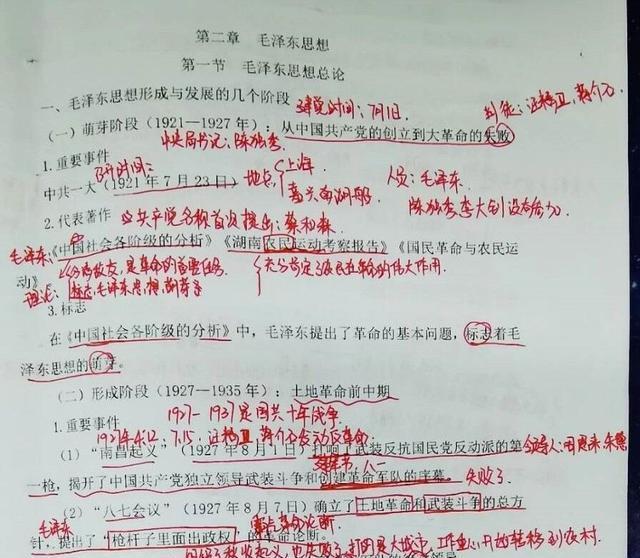 第二章 毛泽东思想
第一节 毛泽东思想总论
一、毛泽东思想形成与发展的几个阶段 建党时间:7月1日 叛徒:汪精卫,蒋介石
(一)萌芽阶段(1921—1927年):从中国共产党的创立到大革命的失败
中央局书记:陈独秀
1.重要事件
召开时间:
中共一大(1921年7月23日) 地点 上海 人员:毛泽东.
嘉兴南湖 陈独秀李大钊没有参加.
2.代表著作 共产党名称首次提出:蔡和森
毛泽东:《中国社会各阶级的分析》《湖南农民运动考察报告》《国民革命与农民运
动》 分清敌友,是革命的首要任务. 充分肯定了农民在革命的伟大作用.
理论: 标志毛泽东思想萌芽
3.标志
在《中国社会各阶级的分析》中,毛泽东提出了革命的基本问题,标志着毛
泽东思想的萌芽。
(二)形成阶段(1927—1935年):土地革命前中期
1.重要事件 1927-1937是国共十年战争
1927年4.12,7.15,汪精卫,蒋介石发动反革命
(1)“南昌起义”(1927年8月1日)打响了武装反抗国民党反动派的第 领导人:周恩来 朱德
八一
一枪,揭开了中国共产党独立领导武装斗争和创建革命军队的序幕。 失败了
(2)“八七会议”(1927年8月7日)确立了土地革命和武装斗争的总方
毛泽东
针,提出了“枪杆子里面出政权”的革命论断。
也失败了 大城市 工作重心开始转移到农村.